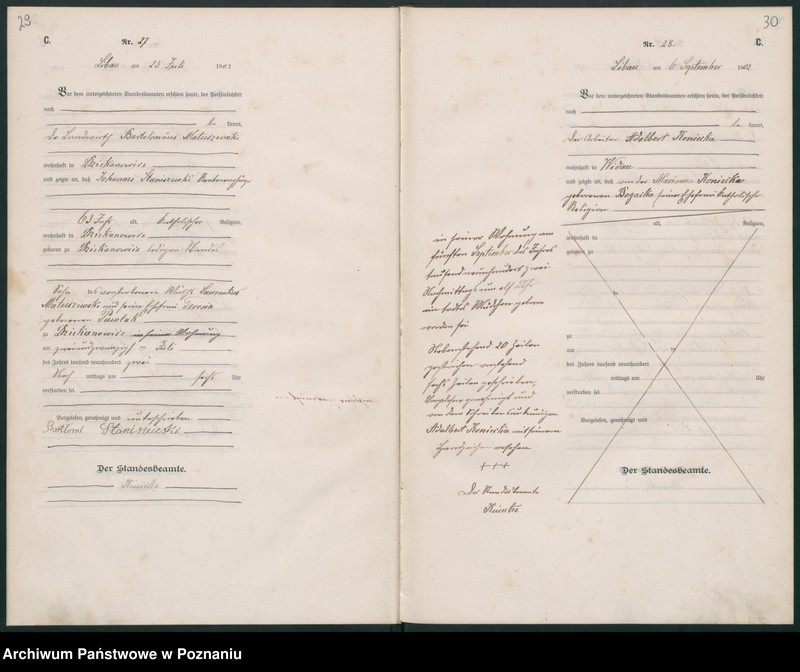 29
C.
Nr. 27
Löbau am 23 Juli 1902
Vor dem unterzeichneten Standesbeamten erschien heute, der Persönlichkeit
nach
be kannt,
der Landwirth Bartolomäus Matuszewski
wohnhaft in Dziekanowice
und zeigte an, daß Johannes Staniszewski
63 Jahr alt, katholischer Religion,
wohnhaft in Dziekanowice
geboren zu Dziekanowice ledigen Standes
Sohn des verstorbenen Wirth Laurentius
Matuszewski und seine Ehefrau Teresia
geborenen Pawlak
zu Dziekanowice in seiner Wohnung
am zweiundzwanzigsten Juli
des Jahres tausend neunhundert zwei
Nach mittags um sechs Uhr
verstorben sei
Vorgelesen, genehmigt und unterschrieben
Der Standesbeamte.
30
C.
Nr. 28
Löbau am 6 September 1902
Vor dem unterzeichneten Standesbeamten erschien heute, der Persönlichkeit
nach
be kannt,
der Arbeiter Adalbert Koniecka
wohnhaft in
und zeigte an, daß von der Marianna Koniecka
geborenen Bogacka seiner Ehefrau katholischer
Religion
alt, Religion,
wohnhaft in
geboren zu
zu
am
des Jahres tausend neunhundert
mittags um Uhr
verstorben sei
Vorgelesen, genehmigt und
Der Standesbeamte.
in seiner Wohnung am
fünften September des Jahres
tausend neunhundert zwei
Nachmittags um elf Uhr
ein todtes Mädchen geboren
worden sei
Nebenstehend 20 Zeilen
gestrichen
sechs Zeilen geschrieben,
Vorgelesen genehmigt und
von dem Schreibensunkundigen
Adalbert Koniecka mit seinem
Handzeichen versehen
+ + +
Der Standesbeamte
Archiwum Państwowe w Poznaniu